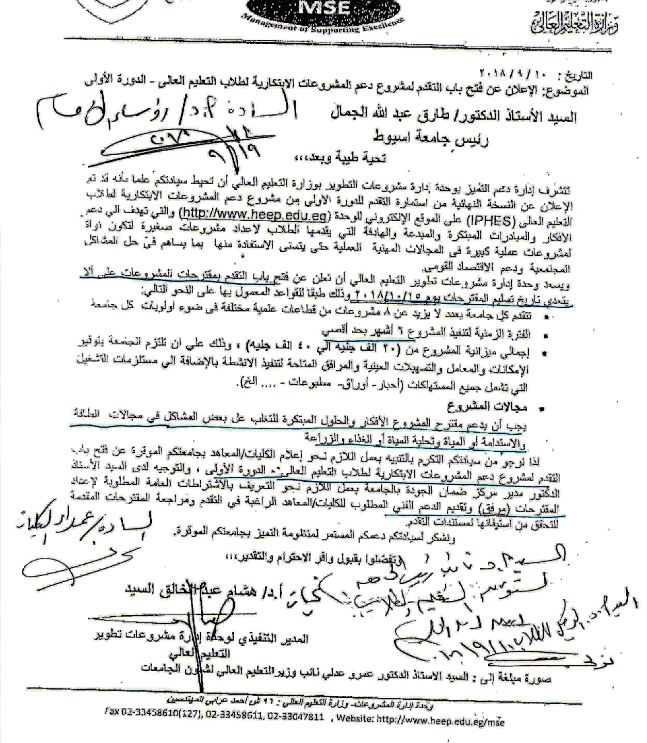 MSE
Management of Supporting Excellence
وزارة التعليم العالي
التاريخ : ٢٠١٨/٩/١٠
الموضوع: الإعلان عن فتح باب التقدم لمشروع دعم المشروعات الابتكارية لطلاب التعليم العالي - الدورة الأولى
السيد الأستاذ الدكتور/ طارق عبد الله الجمال
رئيس جامعة اسيوط
تحية طيبة وبعد،،،
تتشرف إدارة دعم التميز بوحدة إدارة مشروعات التطوير بوزارة التعليم العالي أن تحيط سيادتكم علما بأنه قد تم
الإعلان عن النسخة النهائية من استمارة التقدم للدورة الأولى من مشروع دعم المشروعات الابتكارية لطلاب
التعليم العالي (IPHES) على الموقع الإلكتروني للوحدة (http://www.heep.edu.eg) والتي تهدف الي دعم
الأفكار والمبادرات المبتكرة والمبدعة والهادفة التي يقدمها الطلاب لاعداد مشروعات صغيرة لتكون نواة
لمشروعات عملية كبيرة في المجالات المهنية العملية حتى يتسنى الاستفادة منها بما يساهم في حل المشاكل
المجتمعية ودعم الاقتصاد القومى.
ويسعد وحدة إدارة مشروعات تطوير التعليم العالي أن تعلن عن فتح باب التقدم بمقترحات المشروعات على ألا
يتعدى تاريخ تسليم المقترحات يوم ٢٠١٨/١٠/١٥ وذلك طبقا للقواعد المعمول بها على النحو التالي:
• تتقدم كل جامعة بعدد لا يزيد عن ٨ مشروعات من قطاعات علمية مختلفة في ضوء اولويات كل جامعة
• الفترة الزمنية لتنفيذ المشروع ٦ أشهر بحد أقصي
• إجمالي ميزانية المشروع من (٢٠ الف جنيه الي ٤٠ الف جنيه) ، وذلك علي أن تلتزم الجامعة بتوفير
الإمكانات والمعامل والتسهيلات العينية والمرافق المتاحة لتنفيذ الانشطة بالإضافة الي مستلزمات التشغيل
التي تشمل جميع المستهلكات (أحبار- أوراق- مطبوعات - .... الخ).
• مجالات المشروع
يجب أن يدعم مقترح المشروع الأفكار والحلول المبتكرة للتغلب عل بعض المشاكل في مجالات الطاقة
والاستدامة أو المياة وتحلية المياة أو الغذاء والزراعة
لذا نرجو من سيادتكم التكرم بالتنبيه بعمل اللازم نحو إعلام الكليات/المعاهد بجامعتكم الموقرة عن فتح باب
التقدم لمشروع دعم المشروعات الابتكارية لطلاب التعليم العالي - الدورة الأولى ، والتوجيه لدى السيد الأستاذ
الدكتور مدير مركز ضمان الجودة بالجامعة بعمل اللازم نحو التعريف بالاشتراطات العامة المطلوبة لإعداد
المقترحات (مرفق) وتقديم الدعم الفني المطلوب للكليات/المعاهد الراغبة في التقدم ومراجعة المقترحات المقدمة
للتحقق من استيفائها لمستندات التقدم.
ونشكر لسيادتكم دعمكم المستمر لمنظومة التميز بجامعتكم الموقرة.
وتفضلوا بقبول وافر الاحترام والتقدير،،،
أ.د/ هشام عبد الخالق السيد
المدير التنفيذي لوحدة إدارة مشروعات تطوير
التعليم العالي
صورة مبلغة إلى : السيد الاستاذ الدكتور عمرو عدلي نائب وزير التعليم العالي لشئون الجامعات
وحدة إدارة المشروعات- وزارة التعليم العالي : ٩٦ ش أحمد عرابي المهندسين
Fax 02-33458610(127), 02-33458611, 02-33047811 , Website: http://www.heep.edu.eg/mse